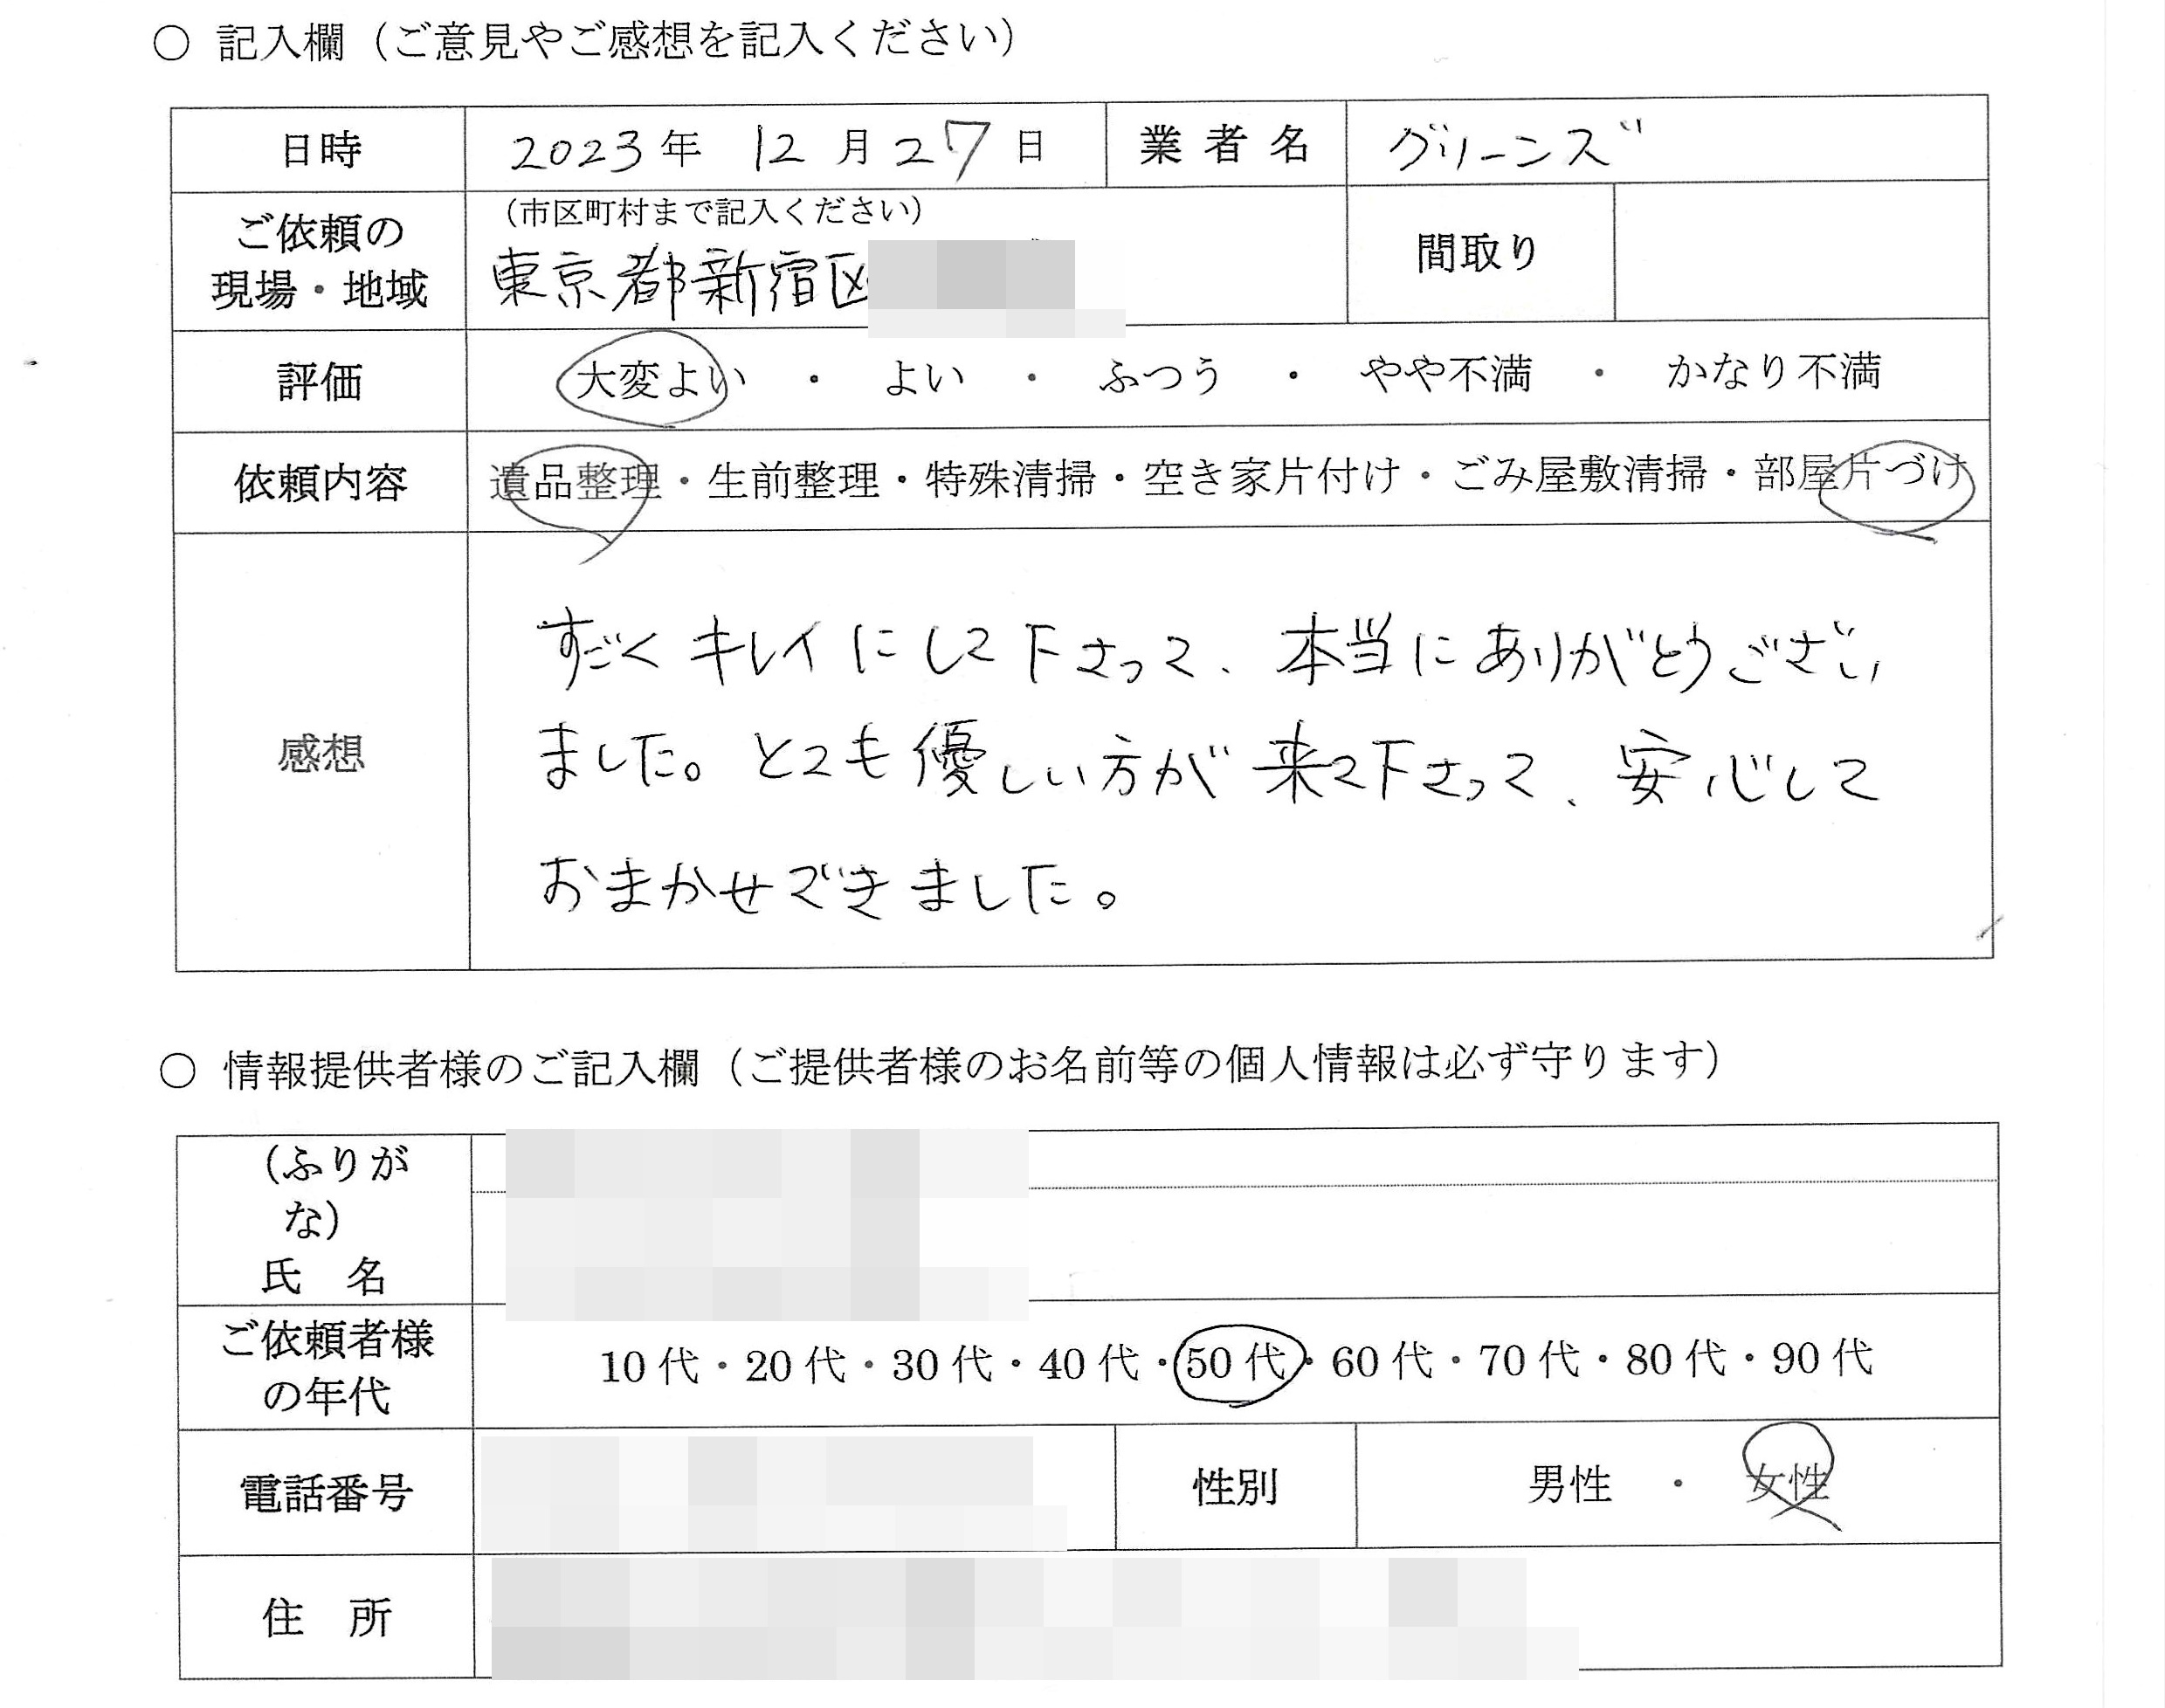 ○ 記入欄（ご意見やご感想を記入ください）
日時 2023年 12月27日 業者名 グリーンズ
ご依頼の現場・地域 （市区町村まで記入ください）
東京都新宿区 間取り
評価 大変よい ・ よい ・ ふつう ・ やや不満 ・ かなり不満
依頼内容 遺品整理・生前整理・特殊清掃・空き家片付け・ごみ屋敷清掃・部屋片づけ
感想
すごくキレイにして下さって、本当にありがとうござい
ました。とても優しい方が来て下さって、安心して
おまかせできました。
○ 情報提供者様のご記入欄（ご提供者様のお名前等の個人情報は必ず守ります）
（ふりが
な）
氏 名
ご依頼者様
の年代
10代・20代・30代・40代・50代・60代・70代・80代・90代
電話番号 性別 男性 ・ 女性
住 所